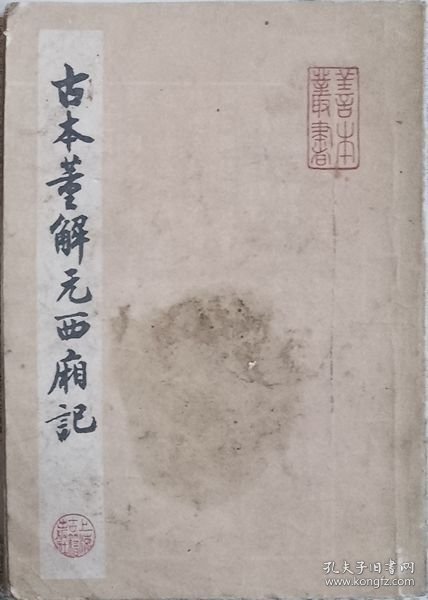 善本
叢書
古本董解元西廂記
上海
古籍
書店
孔夫子旧书网
www.kongfz.com